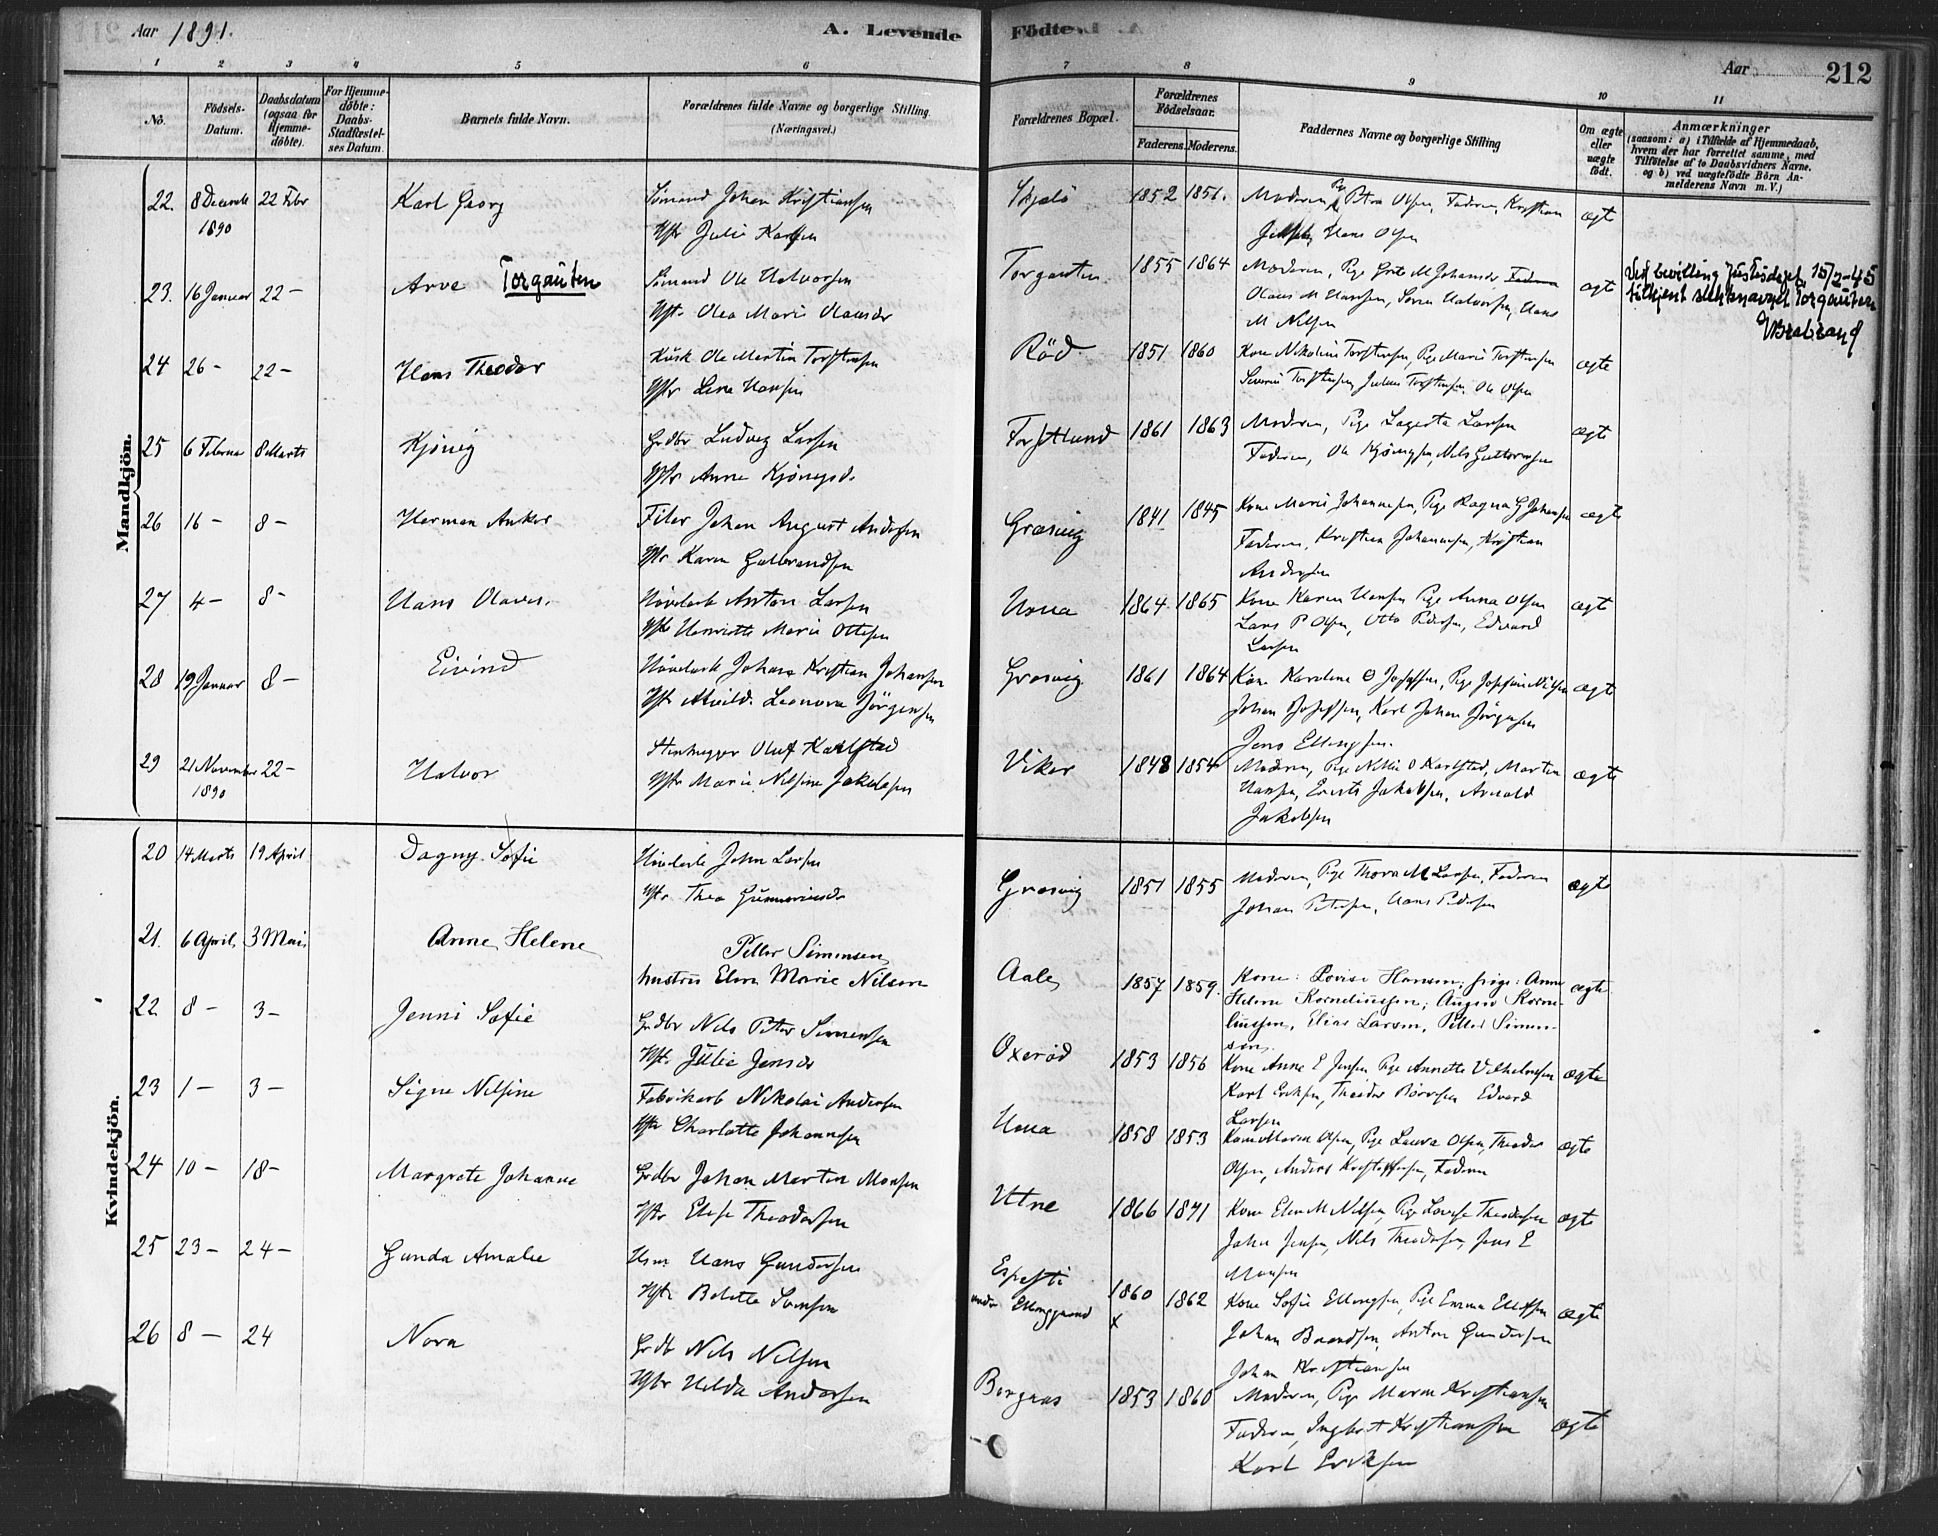 Aar 1891. A. Levende Födte. Aar 212
1 2 3 4 5 6 7 8 9 10 11
No. Födsels-Datum. Daabsdatum (ogsaa for Hjemmedöbte). For Hjemmedöbte: Daabs-Stadfæstelses Datum. Barnets fulde Navn. Forældrenes fulde Navne og borgerlige Stilling (Næringsvei.) Forældrenes Bopæl. Forældrenes Födselsaar. Faderens. Moderens. Faddernes Navne og borgerlige Stilling Om ægte eller uægte födt. Anmærkninger (saasom: a) i Tilfælde af Hjemmedaab, hvem der har forrettet samme, med Tilföielse af to Daabsvidners Navne, og b) ved uægtefödte Börn Anmelderens Navn m. V.)
Mandkjön.
22. 8 Decemb 22 Febr Karl Georg Sömand Johan Kristiansen Skjelö 1852 1851. Moderen, Petra Olsen, Faderen, Kristian ægte
1890 Hstr Julie Karlsen Hans Olsen
23. 16 Januar 22 – Arve Torgauten Sömand Ole Halvorsen Torgauten 1855 1864 Moderen, Pige Grete M Johansdr Faderen ægte Ved bevilling Justisdept. 15/2-45
Hst. Olea Marie Olausdr Olaus M Hansen, Sören Halvorsen, Hans tilkjent slektsnavnet Torgauten
M Nilsen Vbrabrand
24 26 – 22 – Hans Theodor Kusk Ole Martin Torstensen Röd 1851 1860 Kone Nikoline Torstensen, Pige Marie Torstensen ægte
Hstr Lene Hansen Severin Torstensen, Julius Torstensen, Ole Olsen
25 6 Februa 8 Marts Kjönig Grdbr Ludvig Larsen Torstlund 1861 1863 Moderen, Pige Lagerta Larsen ægte
Hstr Anne Kjönigsd. Faderen, Ole Kjönigsen, Nils Guttormsen
26 16 – 8 – Herman Anker Filer Johan August Andersen Græsvig 1841 1845 Kone Marie Johannesen, Pige Ragna G Johansen ægte
Hstr Karen Gulbrandsen Faderen, Kristian Johannesen, Kristian
Andersen
27 4 – 8 – Hans Olaves. Hövelarb Anton Larsen Huna 1864 1865 Kone Karen Hansen Pige Anna Olsen ægte
Hstr Henriette Marie Ottesen Lars P Olsen, Otto Pedersen, Edvard
Larsen
28 19 Januar 8 – Eivind Hövelarb Johan Kristian Johansen Græsvig 1861 1864 Kone Karoline O Josefsen, Pige Josefine Nilsen ægte
Hstr Alvild. Leonora Jörgensen Johan Josefsen, Karl Johan Jörgensen
Jens Ellingsen.
29 21 November 22 – Halvor Stenhugger Oluf Karlstad Viker 1848 1854 Moderen, Pige Nilli O Karlstad, Martin ægte
1890 Hstr Marie Nilsine Jakobsen Hansen, Ernst Jakobsen, Arnold
Jakobsen
Kvindekjön.
20 14 Marts 19 April Dagny Sofie Hövelarb John Larsen Græsvig 1851 1855 Moderen, Pige Thora M Larsen, Faderen ægte
Hstr Thea Gunneriusdr Johan Petersen, Hans Pedersen
21. 6 April 3 Mai Anne Helene Petter Simensen Aale 1857 1859. Kone: Lovise Hansen; pige: Anne ægte
hustru Elen Marie Nilsen Helene Korneliussen; August Korneliussen, Elias Larsen, Petter Simensen.
22 8 – 3 – Jenni Sofie Grdbr Nils Peter Simensen Oxeröd 1853 1856 Kone Anne E Jensen Pige Annette Vilhelmsen ægte
Hst. Julie Jensdr Karl Eriksen, Theodor Börresen Edvard
Larsen
23 1 – 3 – Signe Nilsine Fabrikarb Nikolai Andersen Huna 1858 1853 Kone Maren Olsen, Pige Laura Olsen, Theodor ægte
Hstr Charlotte Johannesen Olsen, Anders Kristoffersen, Faderen
24 10 – 18 – Margrete Johanne Grdbr Johan Martin Monsen Utne 1866 1871 Kone Elen M Nilsen, Pige Lovise Theodorsen ægte
Hstr Elise Theodorsen Johan Jensen, Nils Theodorsen, Jens E
Monsen
25 23 – 24 – Gunda Amalie Hsm Hans Gundersen under 1860 1862 Kone Sofie Ellingsen, Pige Emma Ellefsen ægte
Hstr Bolette Svensen x Johan Baardsen, Anton Gundersen
Johan Kristiansen
26 8 – 24 Nora Grdb Nils Nilsen Bergnæs 1853 1860 Moderen, Pige Maren Kristiansen ægte
Hstr Hilda Andersen Faderen, Ingbret Kristiansen
Karl Eriksen